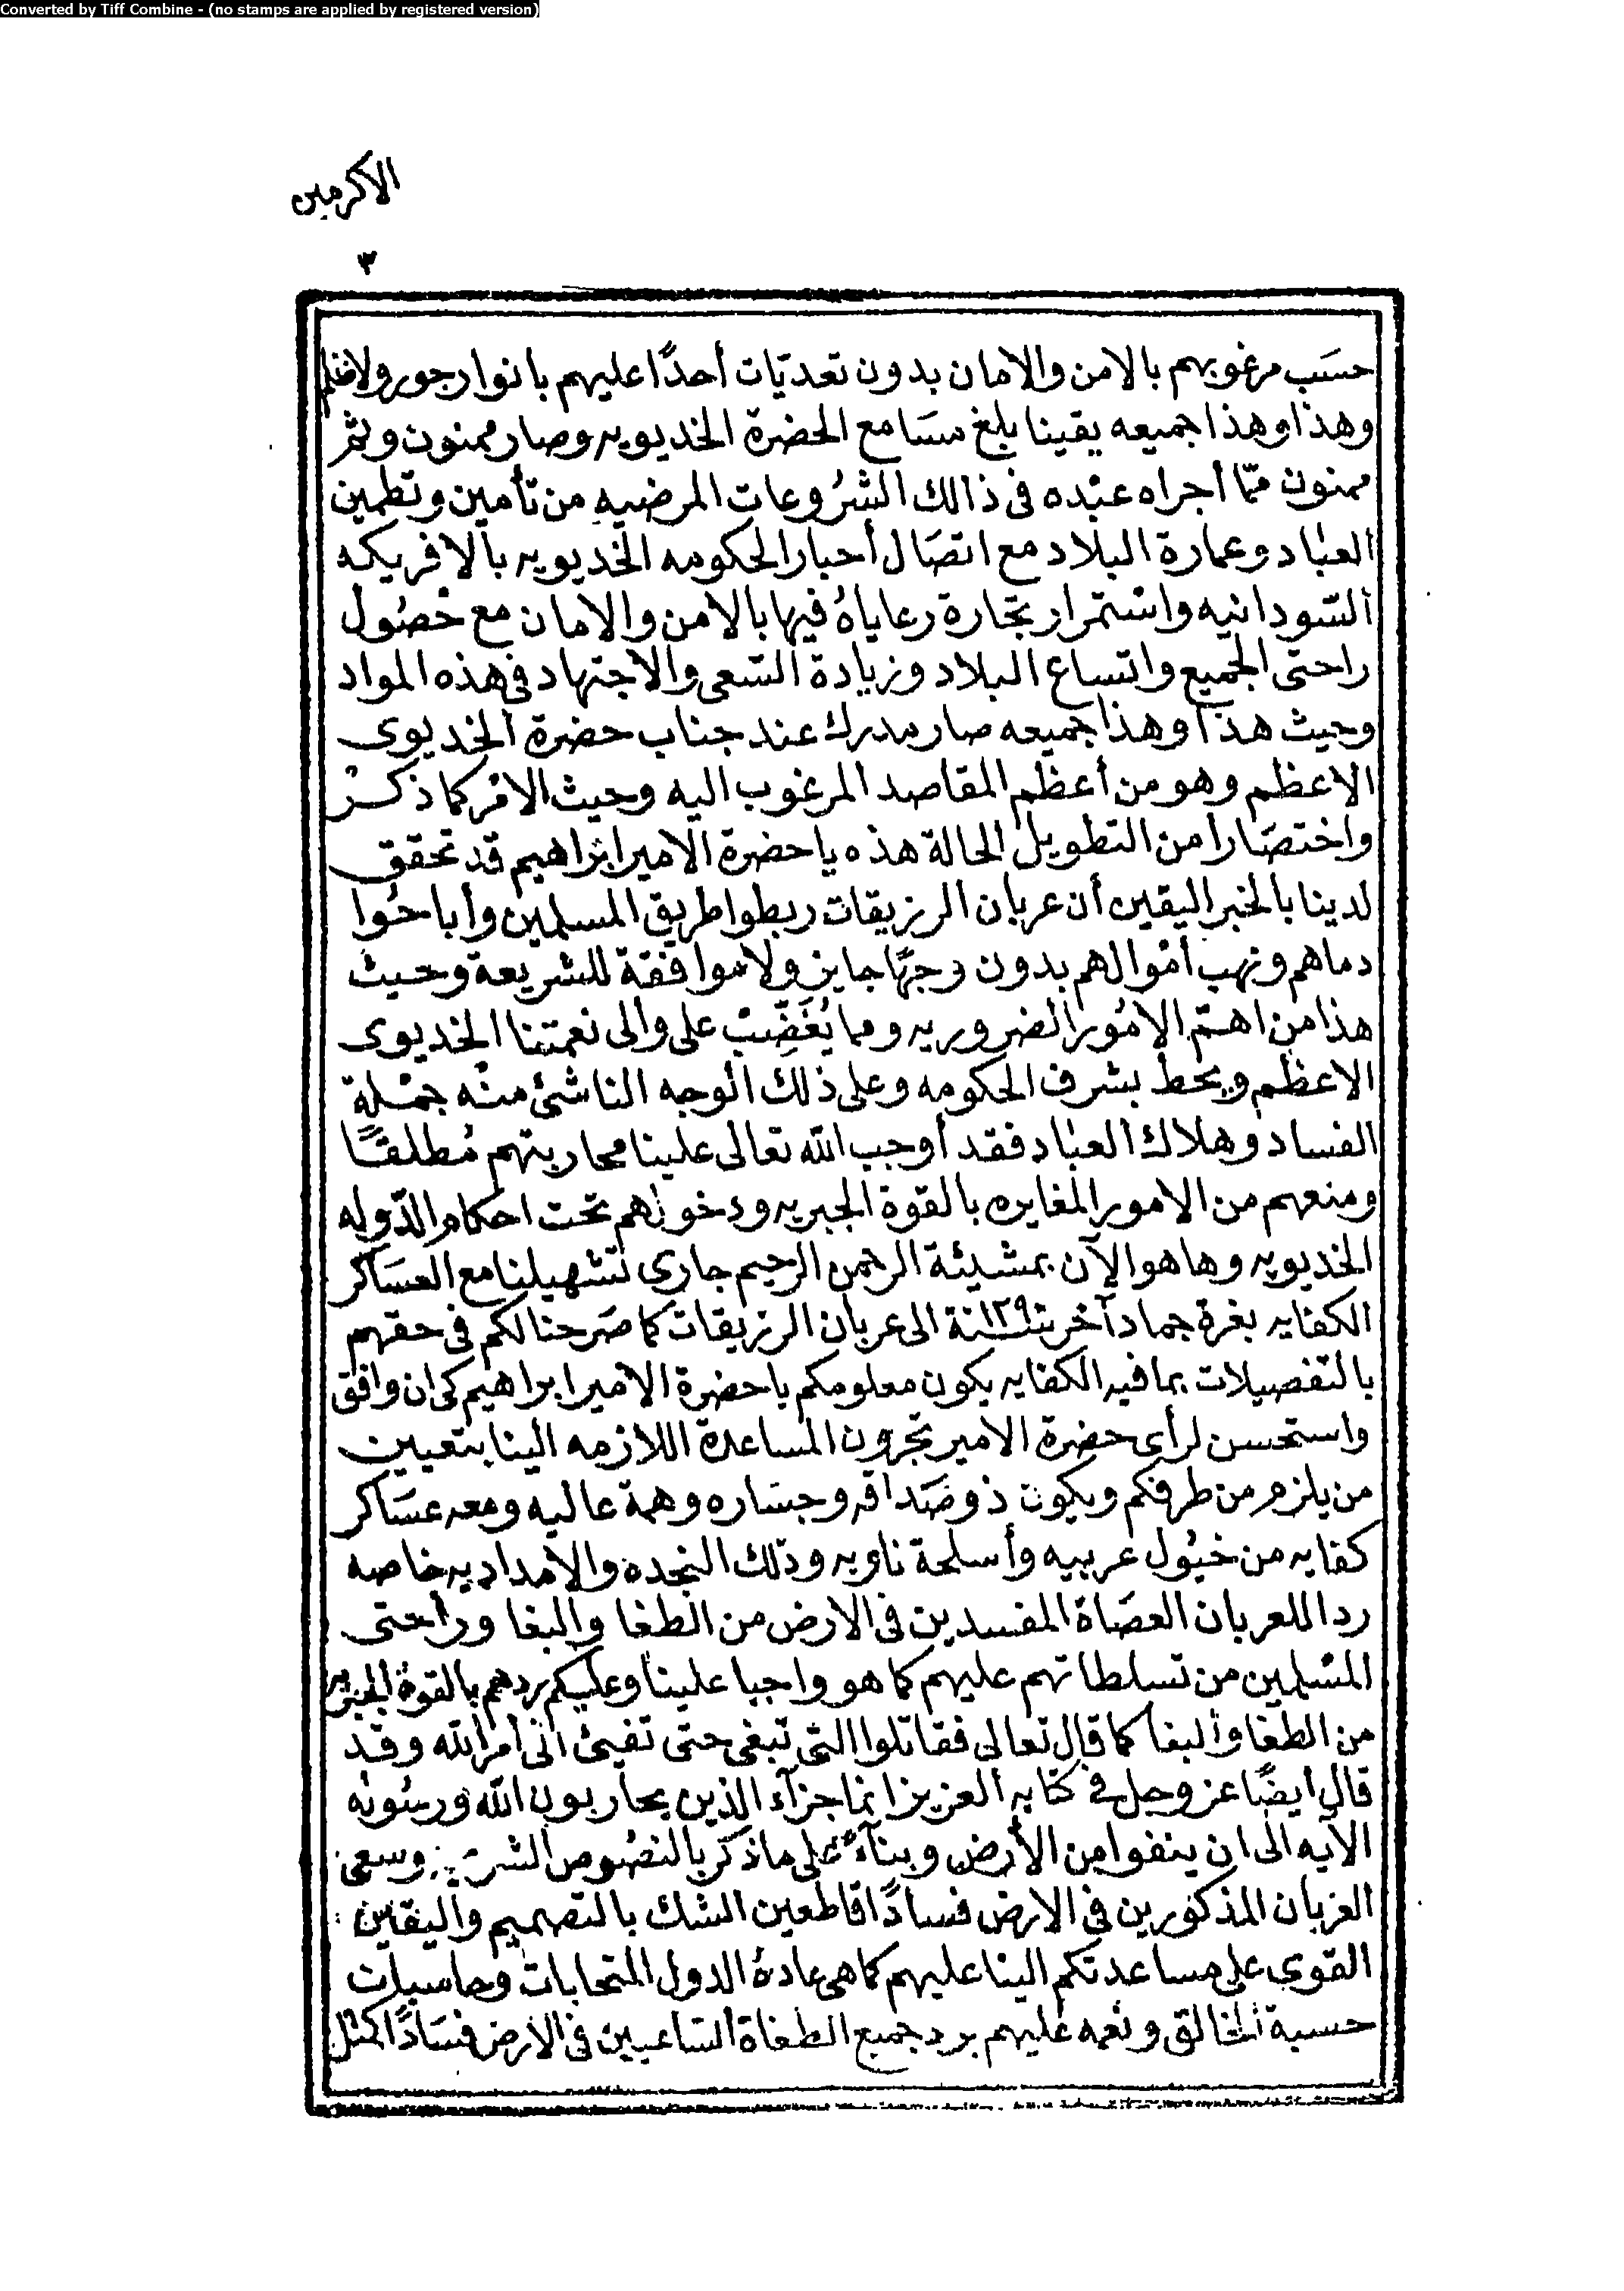 Converted by Tiff Combine - (no stamps are applied by registered version)
الاكرمين
٣
حسَب مرغوبهم بالامن والامان بدون تعديّات أحدًا عليهم بانوار جور ولا ظلم
وهذا وهذا جميعه يقينا بلغ مسَامع الحضرة الخديويه وصار ممنون وثم
ممنون ممّا أجراه عبْده فى ذالك الشرُوعات المرضيه من تأمين وتطمين
العبَاد وعمارة البلاد مع اتصَال أحبار الحكومه الخديويه بالافريكه
السّودانيه واستمرار تجارة رعاياهُ فيها بالامن والامان مع حْصُول
راحتى الجميع واتساع البلاد وزيادة السّعى والاجتهاد فى هذه المواد
وحيث هذا وهذا جميعه صار مدرك عند جناب حضرة الخديوى
الاعظم وهو من أعظم المقاصد المرغوب اليه وحيث الامْر كما ذكر
واختصَارا من التطويل الحالة هذه ياحضرة الامير ابراهيم قد تحقق
لدينا بالخبر اليقين أن عربان الرزيقات ربطوا طريق المسلمين وأباحُوا
دماهم ونهب أمْوالهم بدون وجهًا جايز ولا موافقة للشريعة وحيث
هذا من اهتم الامُور الضروريه ومما يُغَضِّبْ على والى نعمتنا الخديوى
الاعظم ويحط بشرف الحكومه وعلى ذلك الوجه الناشئ منْه جمْلة
الفساد وهلاك العبَاد فقد أوجب الله تعالى علينا محاربتهم مُطلقًا
ومنعهم من الامور المغايره بالقوة الجبريه ودخولهم تحت احكام الدّوله
الخديويه وها هو الآن بمشيئة الرحمن الرحيم جارى تشهيلنا مع العسَاكر
الكفايه بغرة جماد آخر سنة ١٢٩٠ الى عربان الرزيقات كما صَرحنا لكم فى حقهم
بالتفصيلات بما فيه الكفايه يكون معلومكم ياحضرة الامير ابراهيم كى ان وافق
واستحسن لرأى حضرة الامير تجرون المساعدة اللازمه الينا بتعيين
من يلزم من طرفكم ويكون ذو صَداقه وجسَاره وهمة عاليه ومعه عسَاكر
كفايه من خيُول عربيه وأسلحة ناريه وذلك النجده والامداديه خاصه
ردا للعربان العصَاة المفسدين فى الارض من الطغا والبغا وراحتى
المسْلمين من تسلطاتهم عليهم كما هو واجبا علينا وعليكم ردهم بالقوة الجبريه
من الطغا والبغا كما قال تعالى فقاتلوا التى تبغى حتى تفيئ الى أمر الله وقد
قال أيضًا عز وجل فى كتابه العزيز انما جزآء الذين يحاربون الله ورسُوله
الآيه الى ان ينفوا من الأرض وبنآءً على ما ذكر بالنصُوص وسعى
العربان المذكورين فى الارض فسادًا قاطعين الشك بالتصميم واليقين
القوى على مساعدتكم الينا عليهم كما هى عادة الدول المتحابات وحاسبات
حسبة الخالق ونعمه عليهم برد جميع الطغاة السّاعيين فى الارض فسَادًا كمثل